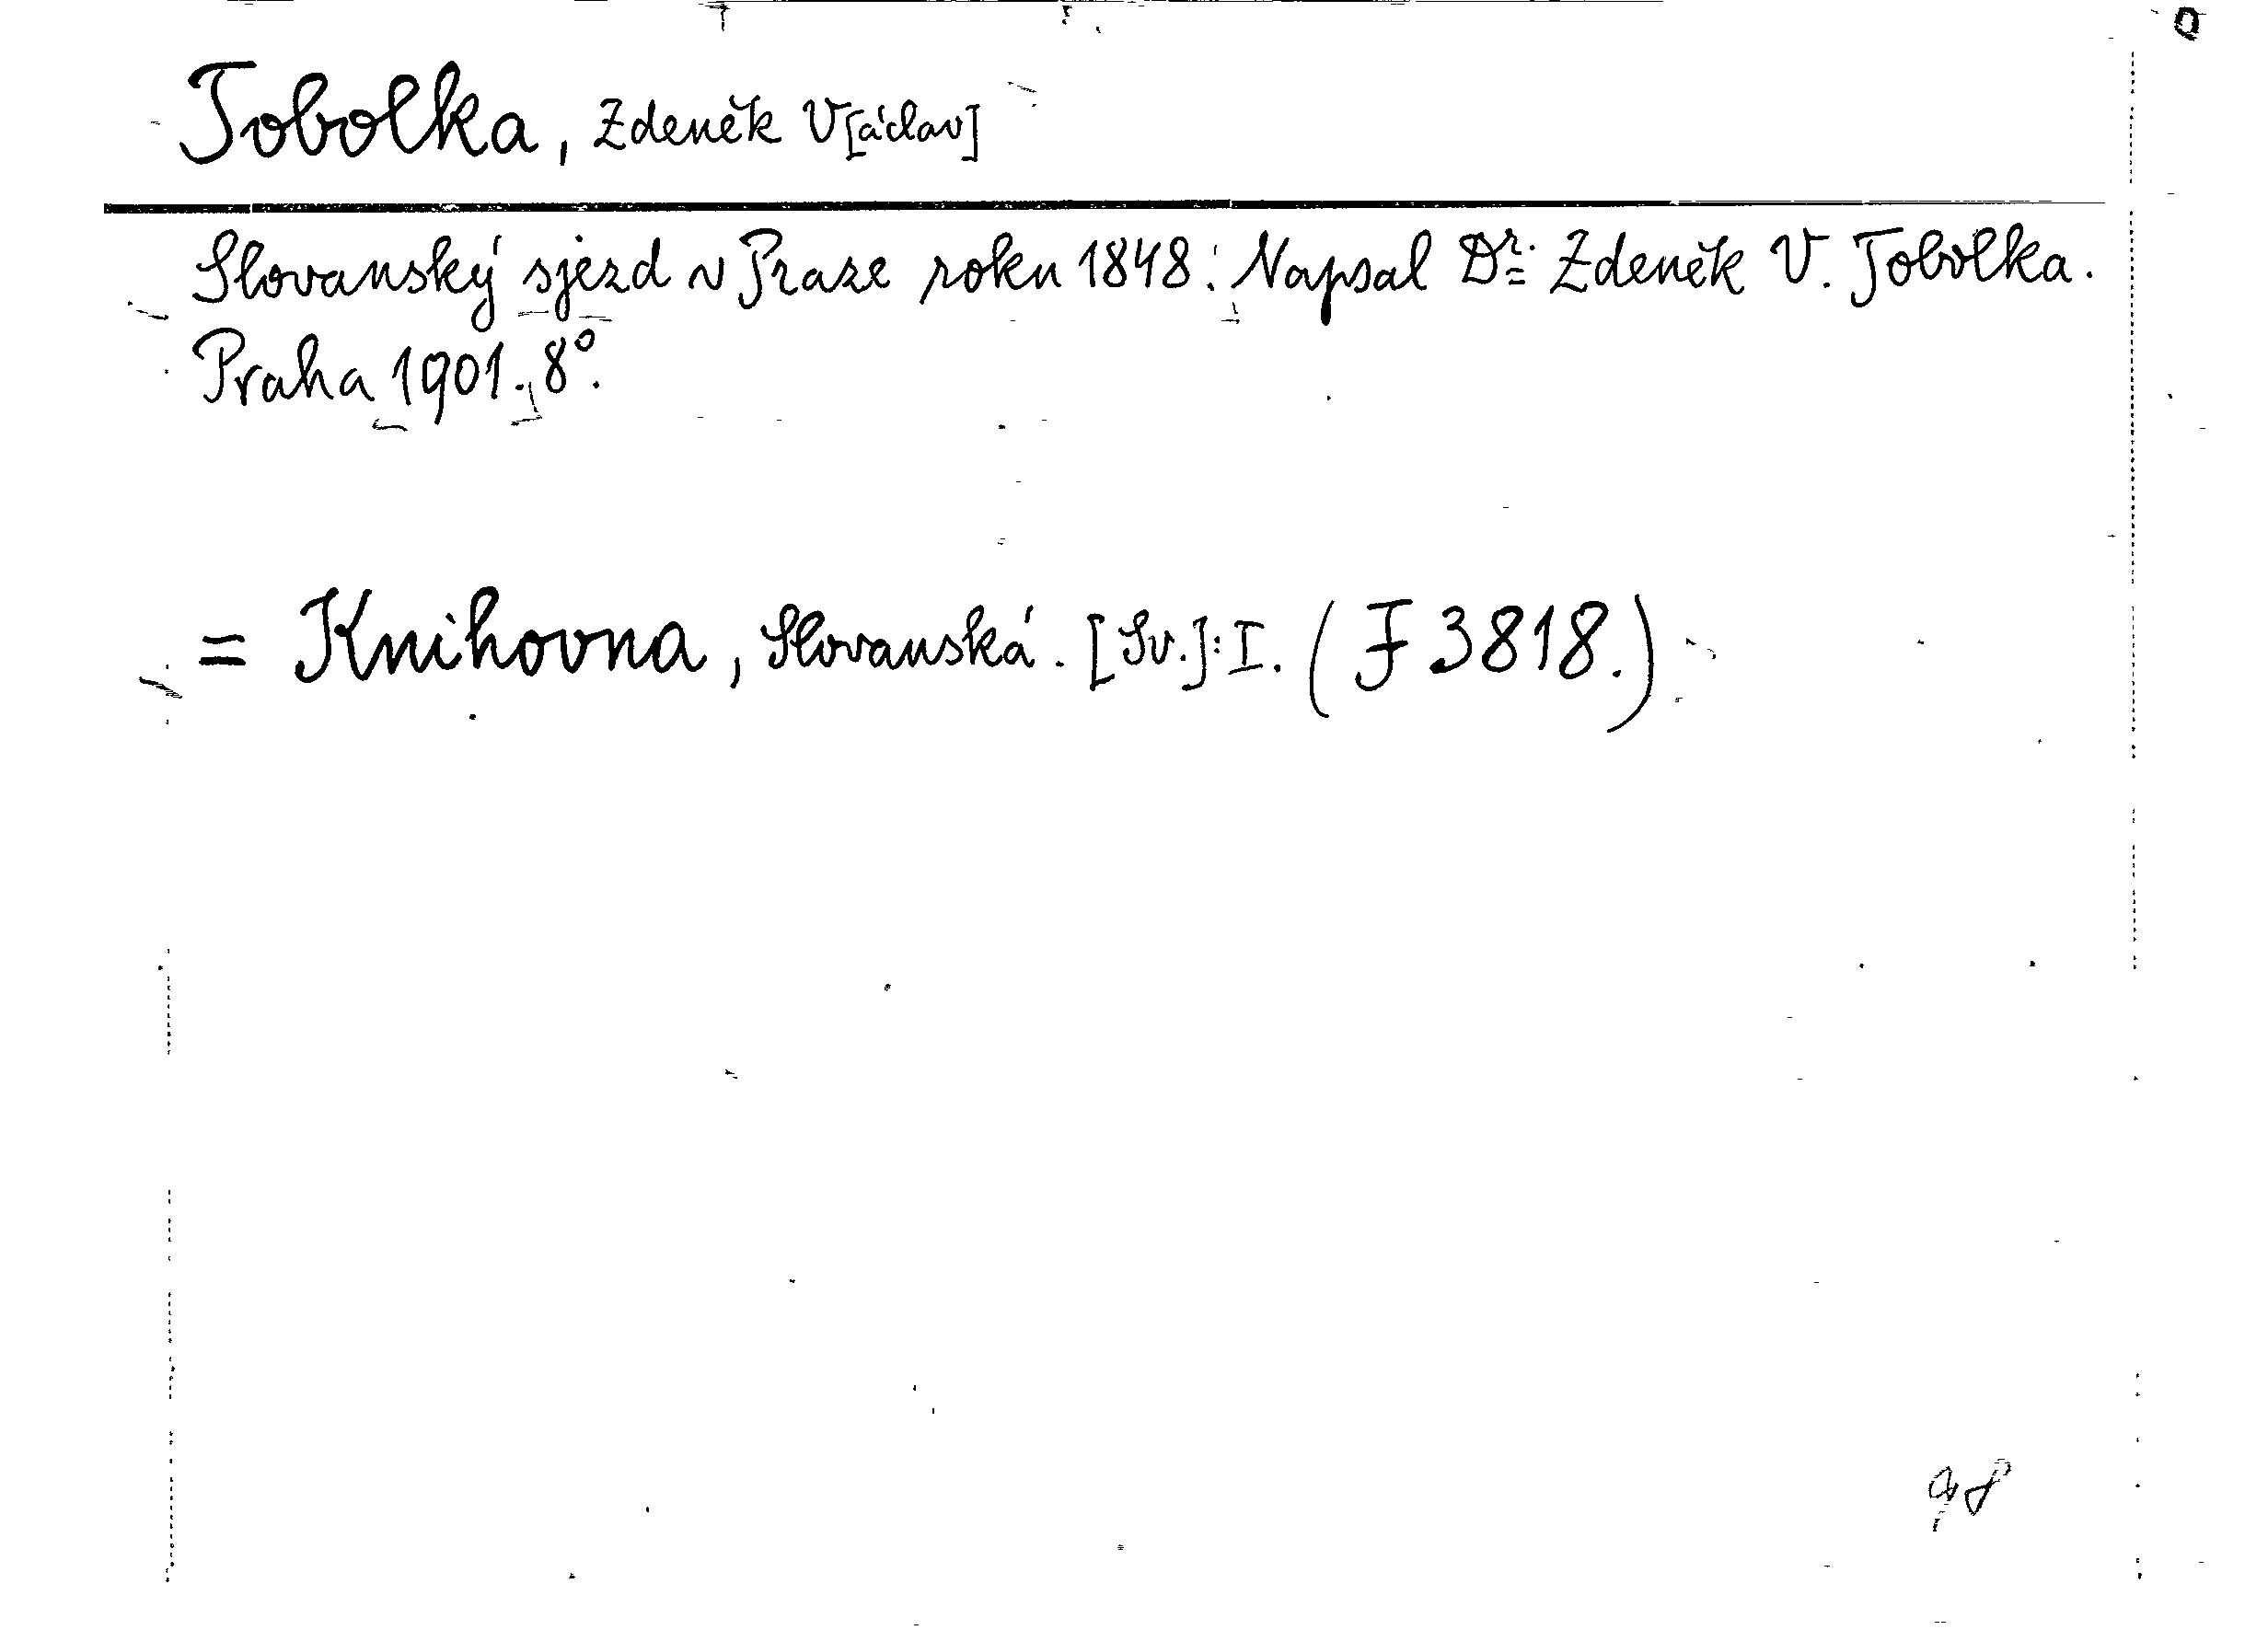 Tobolka, Zdeněk V[áclav]
Slovanský sjezd v Praze roku 1848. Napsal Dr. Zdeněk V. Tobolka.
Praha 1901. 8°.
= Knihovna, Slovanská. [Sv.]: I. (F 3818.)